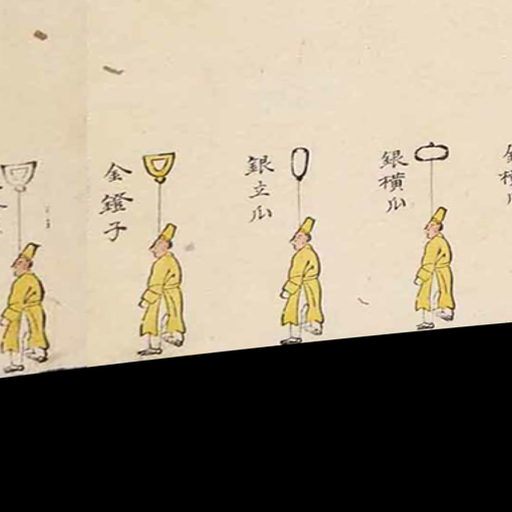 金鐙子
銀立瓜
銀橫瓜